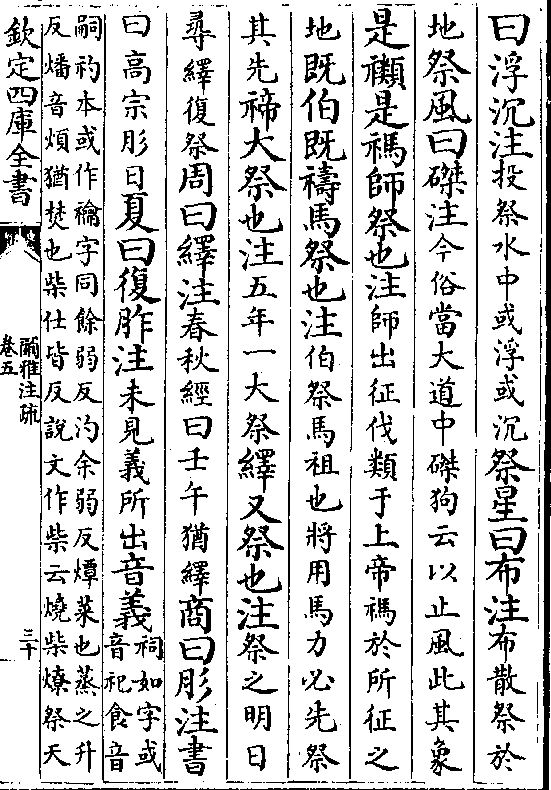 曰浮沉注投祭水中或浮或沉祭星曰布注布散祭於
地祭風曰磔注今俗當大道中磔狗云以止風此其象
是禷是禡師祭也注師出征伐類于上帝禡於所征之
地既伯既禱馬祭也注伯祭馬祖也將用馬力必先祭
其先禘大祭也注五年一大祭繹又祭也注祭之明日
尋繹復祭周曰繹注春秋經曰壬午猶繹商曰肜注書
曰高宗肜日夏曰復胙注未見義所出音義祠如字或
音祀食音
嗣礿本或作禴字同餘弱反汋余弱反㷶菜也蒸之升
反燔音煩猶焚也柴仕皆反說文作柴云燒柴燎祭天
欽定四庫全書
爾雅注疏
卷五
三十